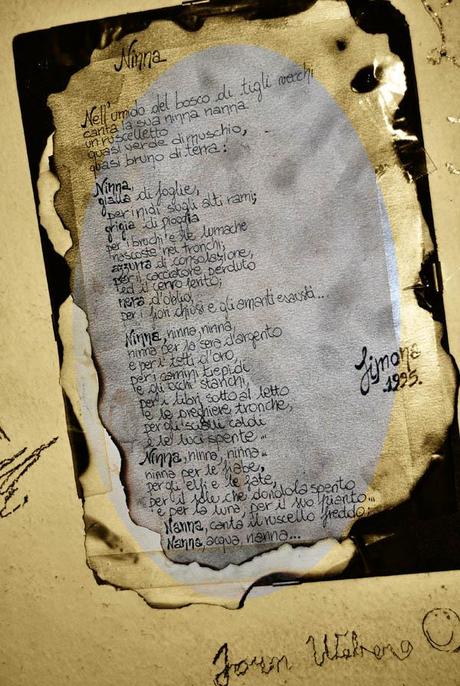 Ninna
Nell'umido del bosco di tigli vecchi
canta la sua ninna nanna
un ruscelletto
quasi verde di muschio,
quasi bruno di terra:
Ninna,
gialla di foglie,
per i nidi sugli alti rami;
grigia di pioggia
per i bruchi e le lumache
nascoste nei tronchi;
azzurra di consolazione,
per il cacciatore perduto
ed il cervo ferito;
nera d'oblio,
per i fiori chiusi e gli amanti esausti...
Ninna, ninna, ninna,
ninna per la sera d'argento
e per i tetti d'oro,
per i camini tiepidi
e gli occhi stanchi,
per i libri sotto al letto
e le preghiere tronche,
per gli scialli caldi
e le luci spente...
Ninna, ninna, ninna...
ninna per le fiabe,
per gli elfi e le fate,
per il sole che dondola spento
e per la luna, per il suo pianto...
Nanna, canta il ruscello freddo;
Nanna, acqua, nanna...
Simona
1995.